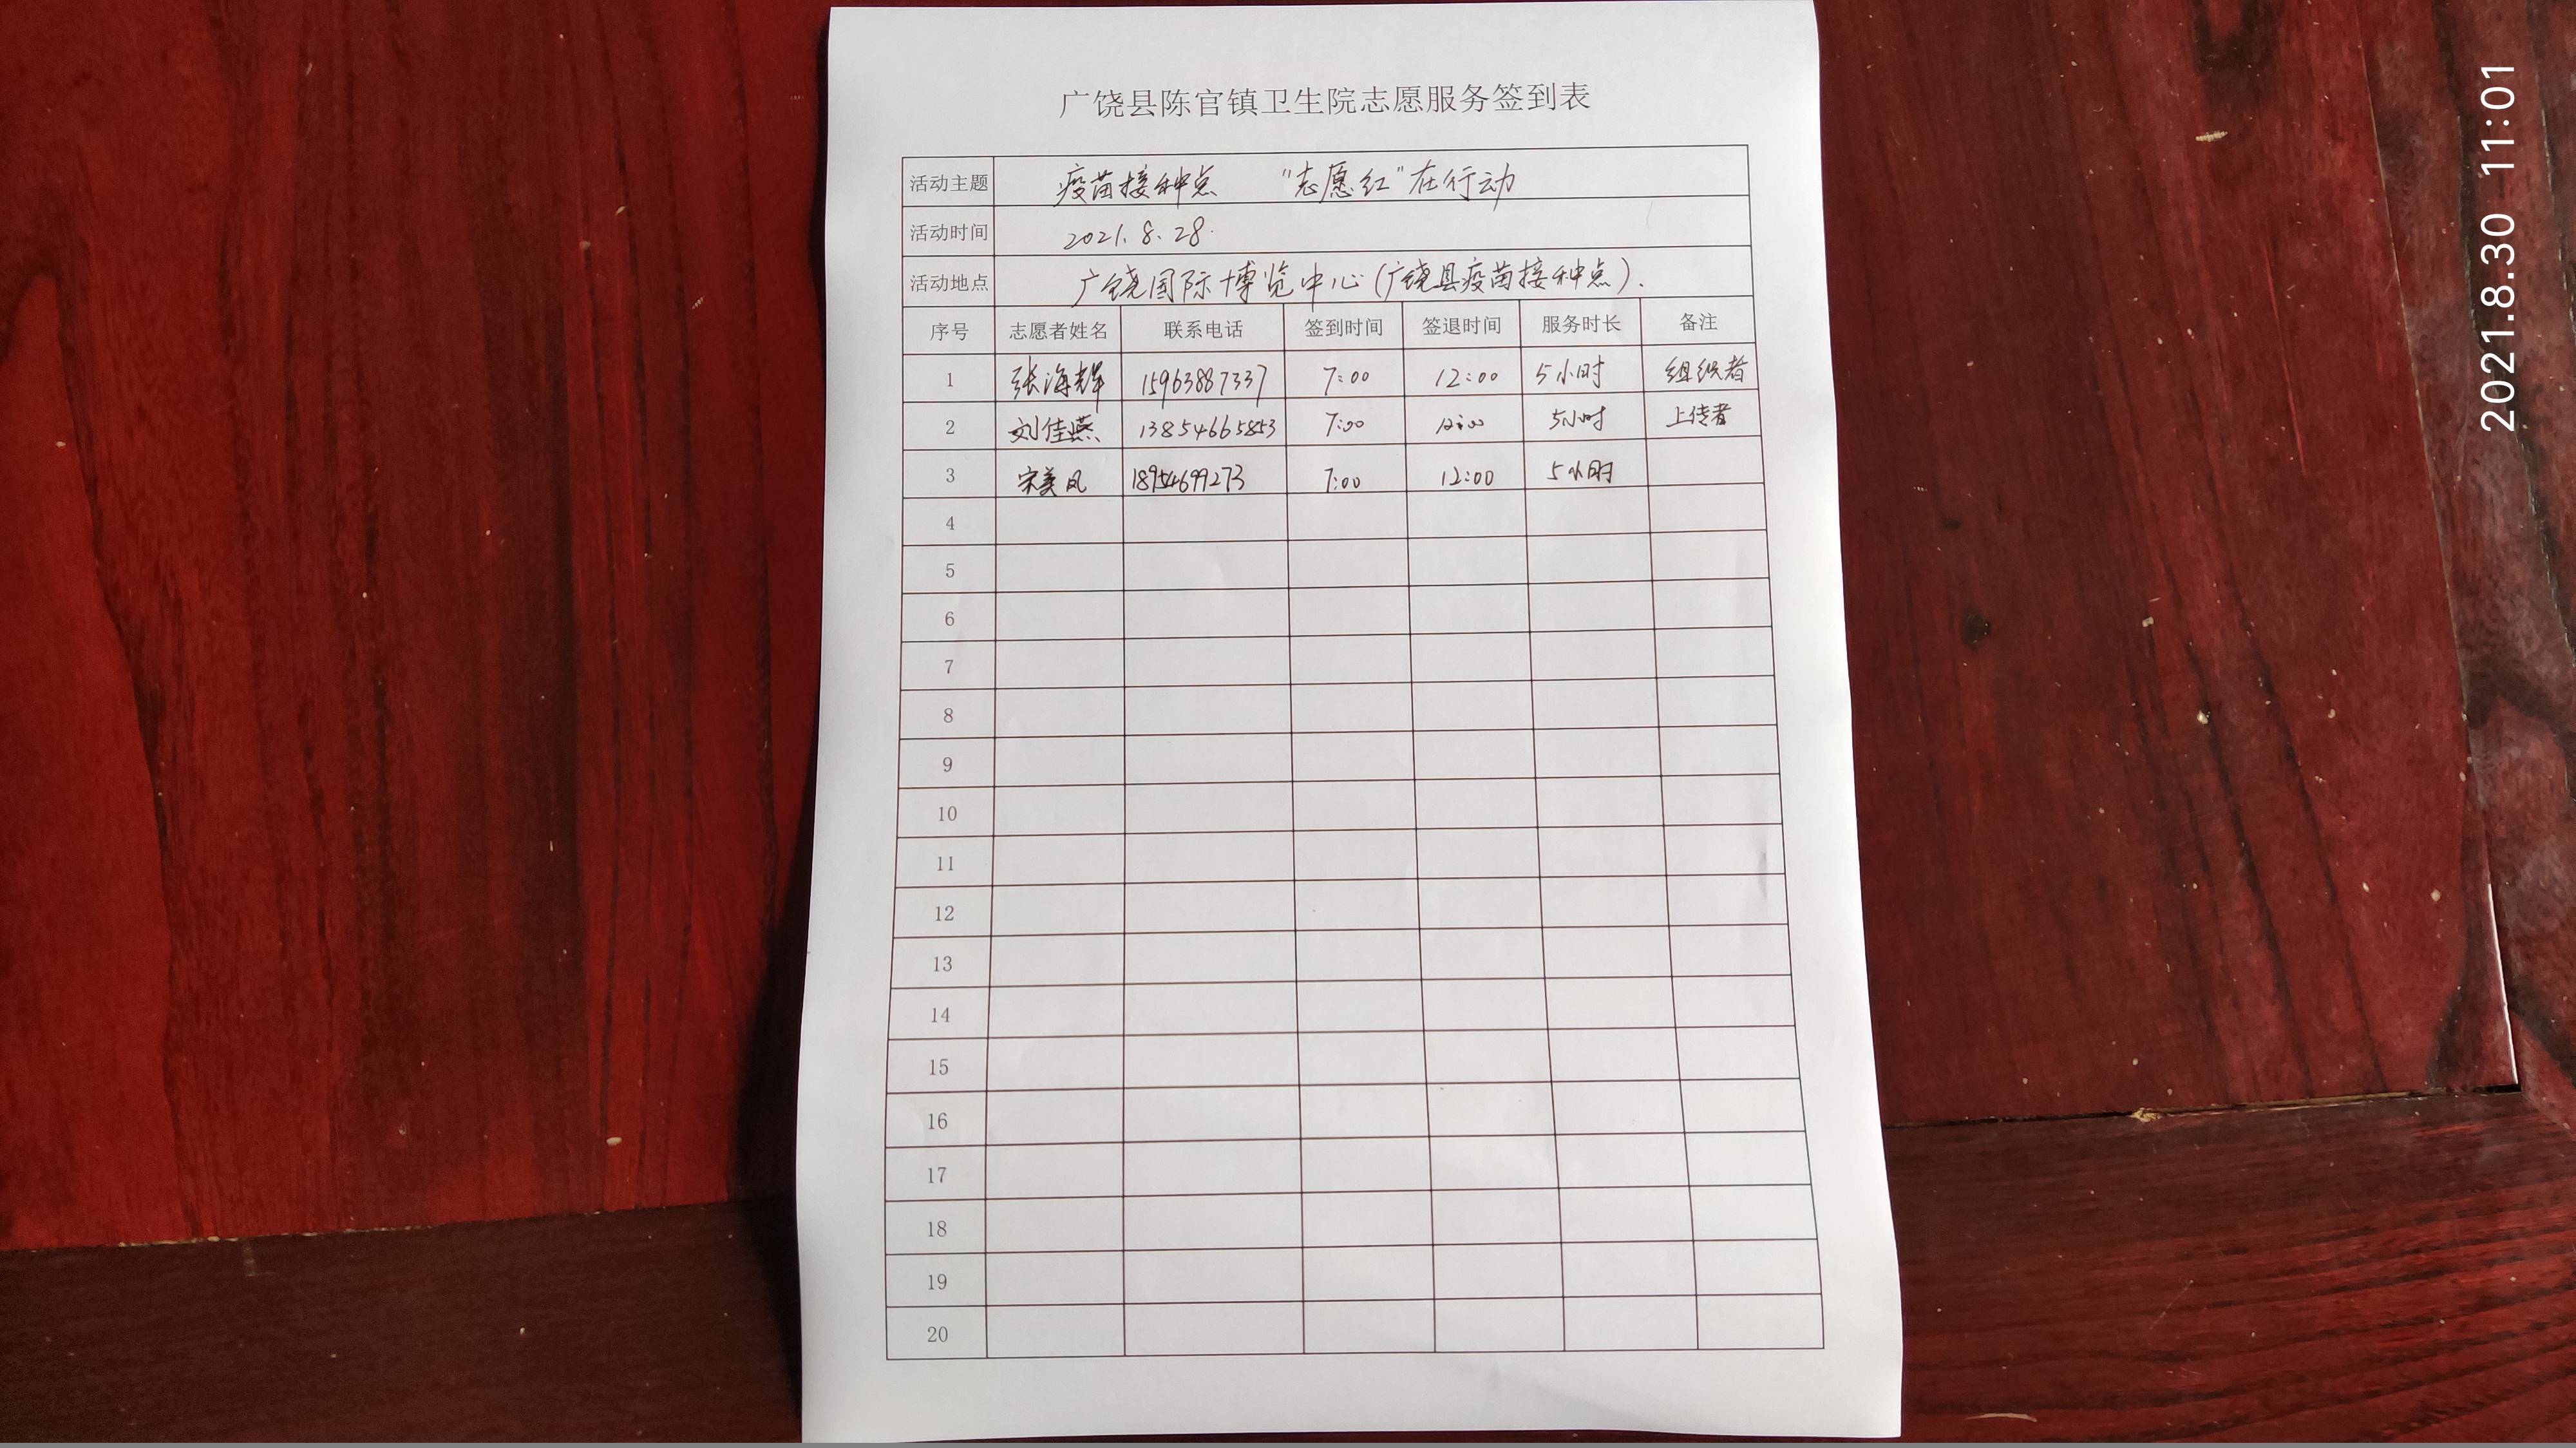 广饶县陈官镇卫生院志愿服务签到表
活动主题 疫苗接种点 "志愿红"在行动
活动时间 2021.8.28.
活动地点 广饶国际博览中心(广饶县疫苗接种点).
序号 志愿者姓名 联系电话 签到时间 签退时间 服务时长 备注
1 张海辉 15963887337 7:00 12:00 5小时 组织者
2 刘佳燕 13854665853 7:00 12:00 5小时 上传者
3 宋美凤 18954699273 7:00 12:00 5小时
4
5
6
7
8
9
10
11
12
13
14
15
16
17
18
19
20
2021.8.30 11:01